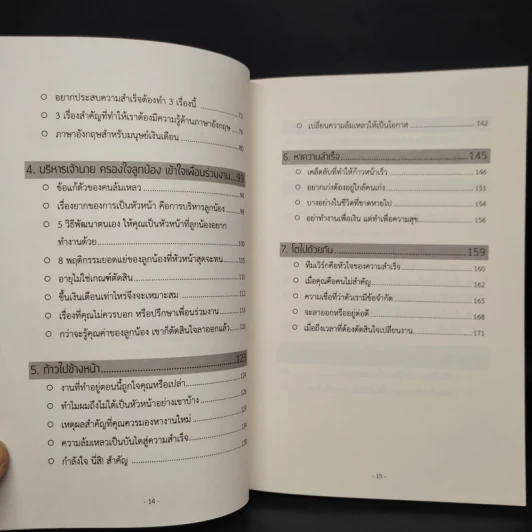 อยากประสบความสำเร็จต้องทำ 3 เรื่องนี้ ... 73
3 เรื่องสำคัญที่ทำให้เราต้องมีความรู้ด้านภาษาอังกฤษ ... 76
ภาษาอังกฤษสำหรับมนุษย์เงินเดือน ... 80
4. บริหารเจ้านาย ครองใจลูกน้อง เข้าใจเพื่อนร่วมงาน... 93
ข้อแก้ตัวของคนล้มเหลว ... 94
เรื่องยากของการเป็นหัวหน้า คือการบริหารลูกน้อง ... 98
5 วิธีพัฒนาตนเอง ให้คุณเป็นหัวหน้าที่ลูกน้องอยาก
ทำงานด้วย ... 100
8 พฤติกรรมยอดแย่ของลูกน้องที่หัวหน้าสุดจะทน ... 105
อายุไม่ใช่เกณฑ์ตัดสิน ... 110
ขึ้นเงินเดือนเท่าไหร่จึงจะเหมาะสม ... 112
เรื่องที่คุณไม่ควรบอก หรือปรึกษาเพื่อนร่วมงาน ... 118
กว่าจะรู้คุณค่าของลูกน้อง เขาก็ตัดสินใจลาออกแล้ว ... 120
5. ก้าวไปข้างหน้า ... 123
งานที่ทำอยู่ตอนนี้ถูกใจคุณหรือเปล่า ... 124
ทำไมผมถึงไม่ได้เป็นหัวหน้าอย่างเขาบ้าง
เหตุผลสำคัญที่คุณควรมองหางานใหม่
ความล้มเหลวเป็นบันไดสู่ความสำเร็จ
กำลังใจ นี่สิ! สำคัญ
- 14 -
เปลี่ยนความล้มเหลวให้เป็นโอกาส ... 142
6. หาความสำเร็จ ... 145
เคล็ดลับที่ทำให้ก้าวหน้าเร็ว ... 146
อยากเก่งต้องอยู่ใกล้คนเก่ง ... 151
บางอย่างในชีวิตที่ขาดหายไป ... 154
อย่าทำงานเพื่อเงิน แต่ทำเพื่อความสุข ... 156
7. โตไปด้วยกัน ... 159
ทีมเวิร์กคือหัวใจของความสำเร็จ ... 160
เมื่อคุณคือคนไม่สำคัญ ... 162
ความเชื่อที่ว่าตัวเรามีข้อจำกัด ... 165
จะลาออกหรืออยู่ต่อดี ... 168
เมื่อถึงเวลาที่ต้องตัดสินใจเปลี่ยนงาน ... 171
- 15 -